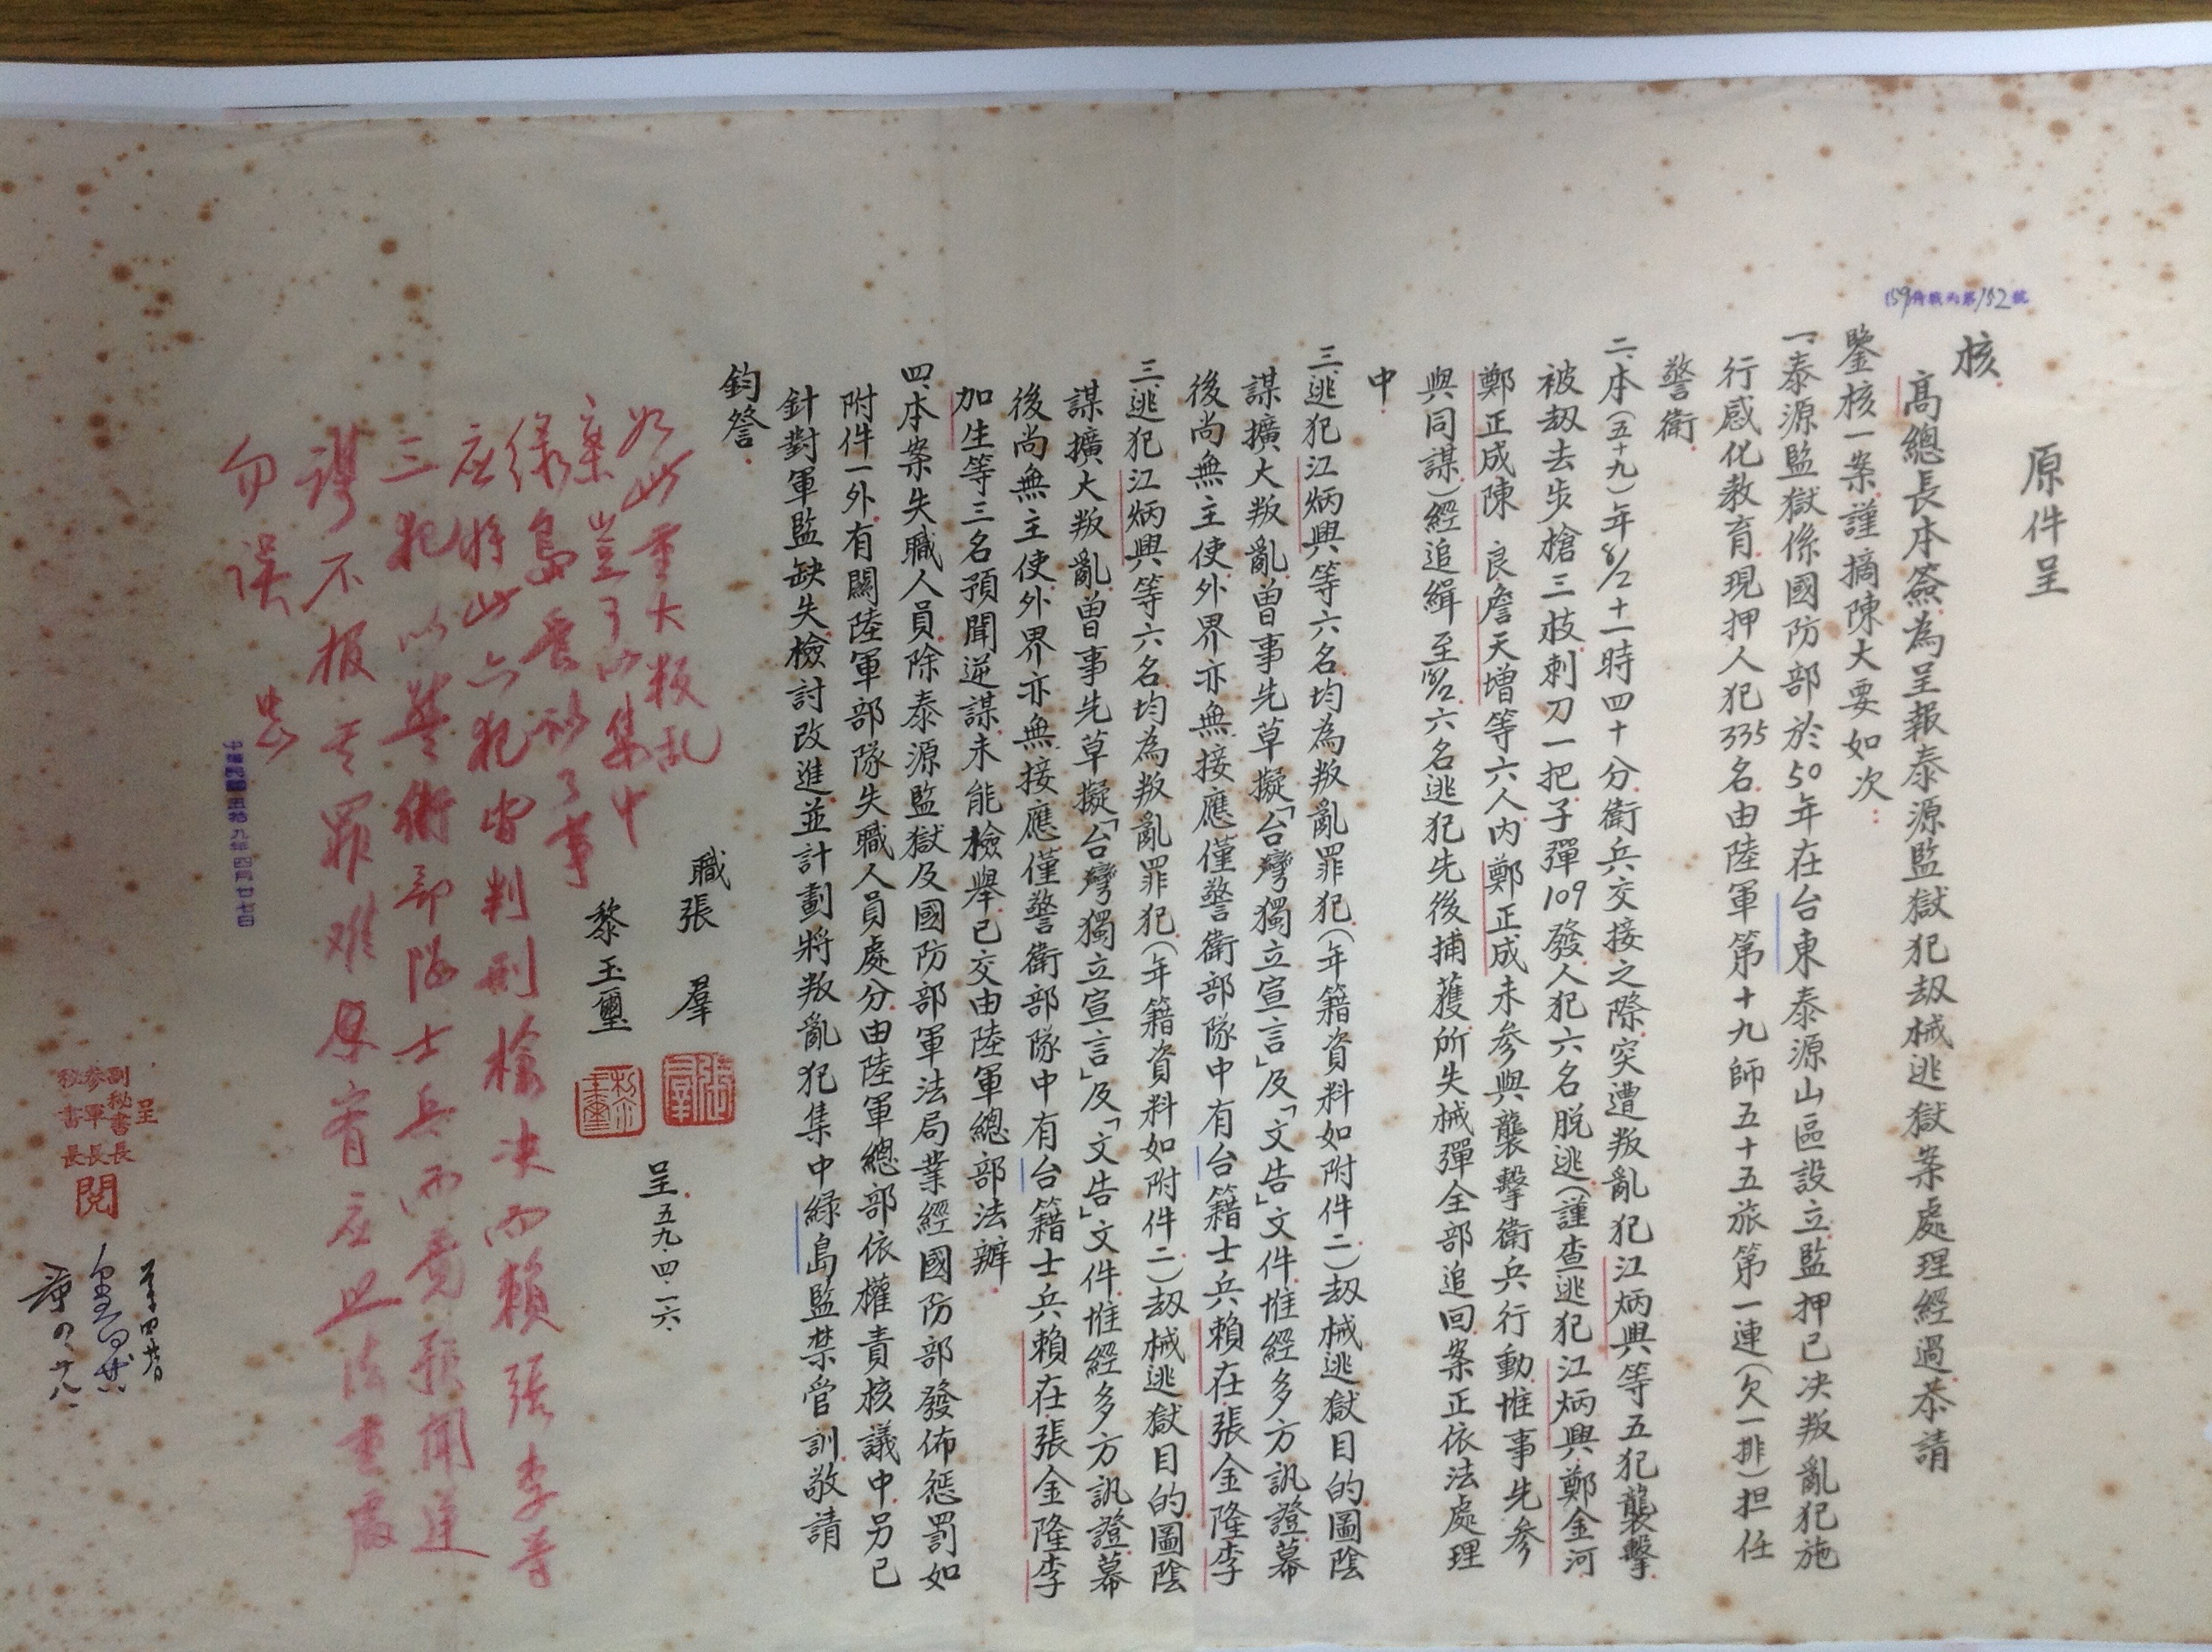 原件呈
核
高總長本簽為呈報泰源監獄犯刼械逃獄案處理經過恭請
鑒核一案謹摘陳大要如次：
一、泰源監獄係國防部於50年在台東泰源山區設立監押已決叛亂犯施
行感化教育現押人犯335名由陸軍第十九師五十五旅第一連（欠一排）担任
警衛
二、本（五十九）年8/2十一時四十分衛兵交接之際突遭叛亂犯江炳興等五犯襲擊
被刼去步槍三枝刺刀一把子彈109發人犯六名脫逃（謹查逃犯江炳興鄭金河
鄭正成陳良詹天增等六人內鄭正成未参與襲擊衛兵行動惟事先参
與同謀）經追緝至18/2六名逃犯先後捕獲所失械彈全部追回案正依法處理
中
三、逃犯江炳興等六名均為叛亂罪犯（年籍資料如附件二）刼械逃獄目的圖陰
謀擴大叛亂曾事先草擬「台灣獨立宣言」及「文告」文件惟經多方訊證幕
後尚無主使外界亦無接應僅警衛部隊中有台籍士兵賴在張金隆李
三、逃犯江炳興等六名均為叛亂罪犯（年籍資料如附件二）刼械逃獄目的圖陰
謀擴大叛亂曾事先草擬「台灣獨立宣言」及「文告」文件惟經多方訊證幕
後尚無主使外界亦無接應僅警衛部隊中有台籍士兵賴在張金隆李
加生等三名預聞逆謀未能檢舉已交由陸軍總部法辦
四、本案失職人員除泰源監獄及國防部軍法局業經國防部發佈懲罰如
附件一外有關陸軍部隊失職人員處分由陸軍總部依權責核議中另已
針對軍監缺失檢討改進並計劃將叛亂犯集中綠島監禁管訓敬請
鈞詧
職張羣
黎玉璽
呈五九、四、一六、
如此重大叛乱
案豈可以集中
綠島管訓了事
应將此六犯皆判刑槍决而賴張李等
三犯以警衛部隊士兵而竟預聞逆
謀不报其罪难原宥应照法重處
勿誤
中華民國五拾九年四月廿七日
呈
副秘書長
參軍長
秘書長
閱